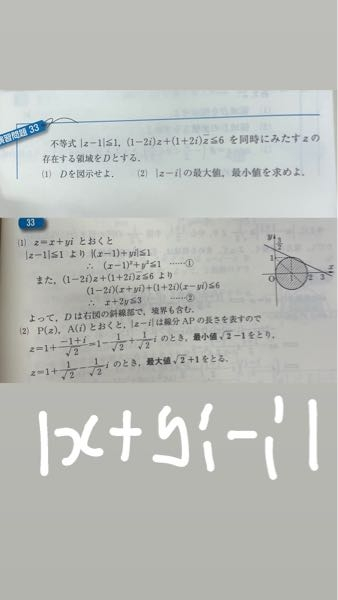 演習問題 33
不等式 |z-1|≦1, (1-2i)z+(1+2i)z̅≦6 を同時にみたす z の
存在する領域を D とする.
(1) D を図示せよ. (2) |z-i| の最大値, 最小値を求めよ.
33
(1) z=x+yi とおくと
|z-1|≦1 より |(x-1)+yi|≦1
∴ (x-1)²+y²≦1 ……①
また, (1-2i)z+(1+2i)z̅≦6 より
(1-2i)(x+yi)+(1+2i)(x-yi)≦6
∴ x+2y≦3 ……②
よって, D は右図の斜線部で, 境界も含む.
(2) P(z), A(i) とおくと, |z-i| は線分 AP の長さを表すので
z=1+(-1+i)/√2=1-1/√2+1/√2 i のとき, 最小値 √2-1 をとり,
z=1+1/√2-1/√2 i のとき, 最大値 √2+1 をとる.
y
3/2
1
O 1 2 3 x
|x+yi-i|